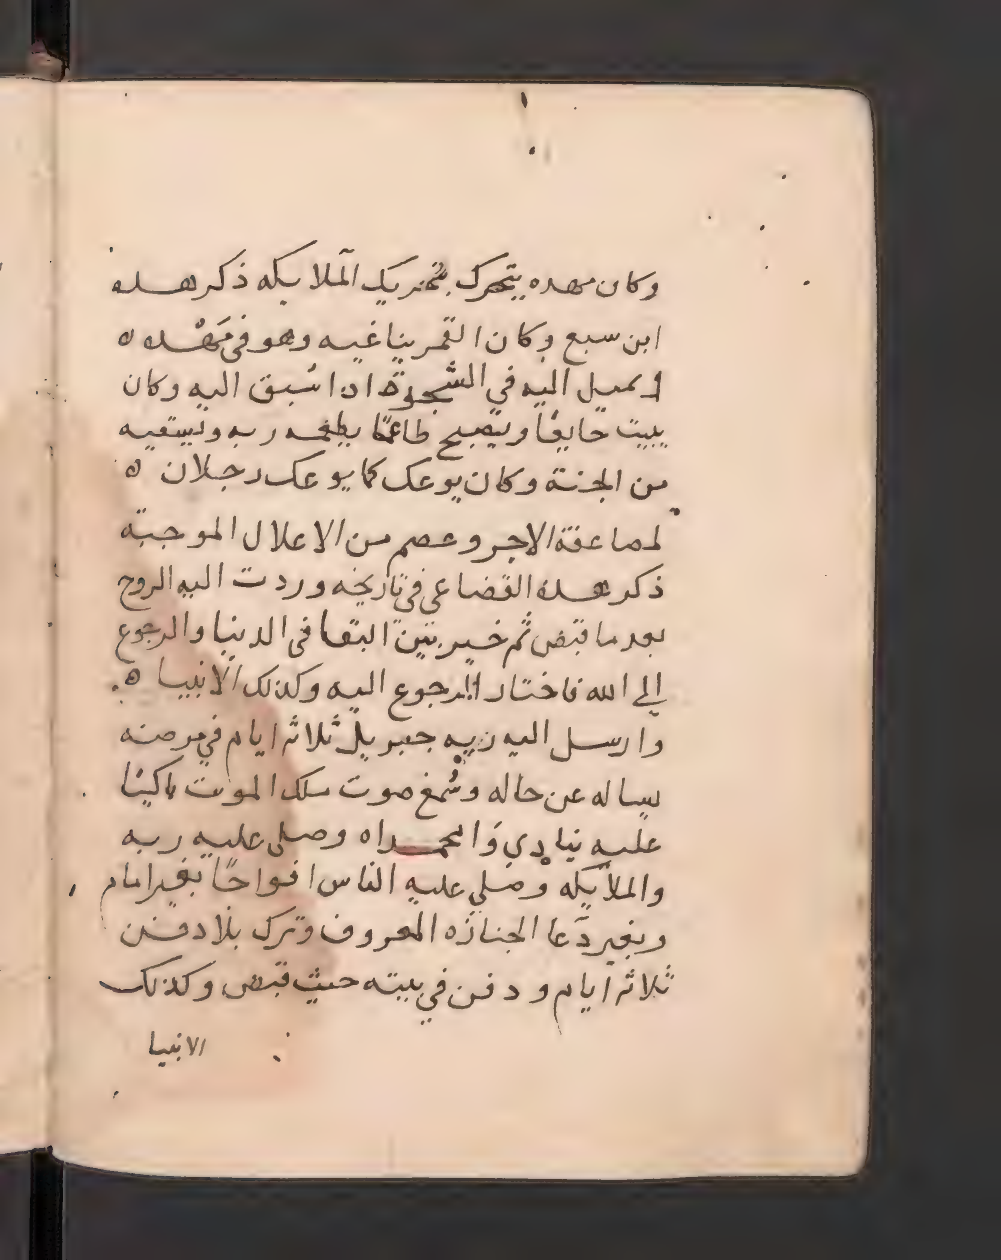 وكان مهده يتحرك بتحريك الملايكه ذكر هذه
ابن سبع وكان القمر يناغيه وهو في مَهْده ه
يميل اليه في الشجرة اذا سُبق اليه وكان
يبيت جايعًا ويصبح طاعمًا يطعمه ربه ويسقيه
من الجنة وكان يوعك كما يوعك رجلان ه
لمضاعفة الاجر وعصم من الاعلال الموجبة
ذكر هذه القضاعي في تاريخه وردت اليه الروح
بعد ما قبض ثم خير بين البقا في الدنيا والرجوع
الي الله فاختار الرجوع اليه وكذلك الانبيا ه
وارسل اليه ربه جبريل ثلاثه ايام في مرضه
يساله عن حاله وسُمع صوت ملك الموت باكيًا
عليه ينادي وَا محمداه وصلي عليه ربه
والملآيكه وصلي عليه الناس افواجًا بغير امام
وبغير دَعا الجنازه المعروف وترك بلا دفن
ثلاثه ايام ودفن في بيته حيث قبض وكذلك
الانبيا